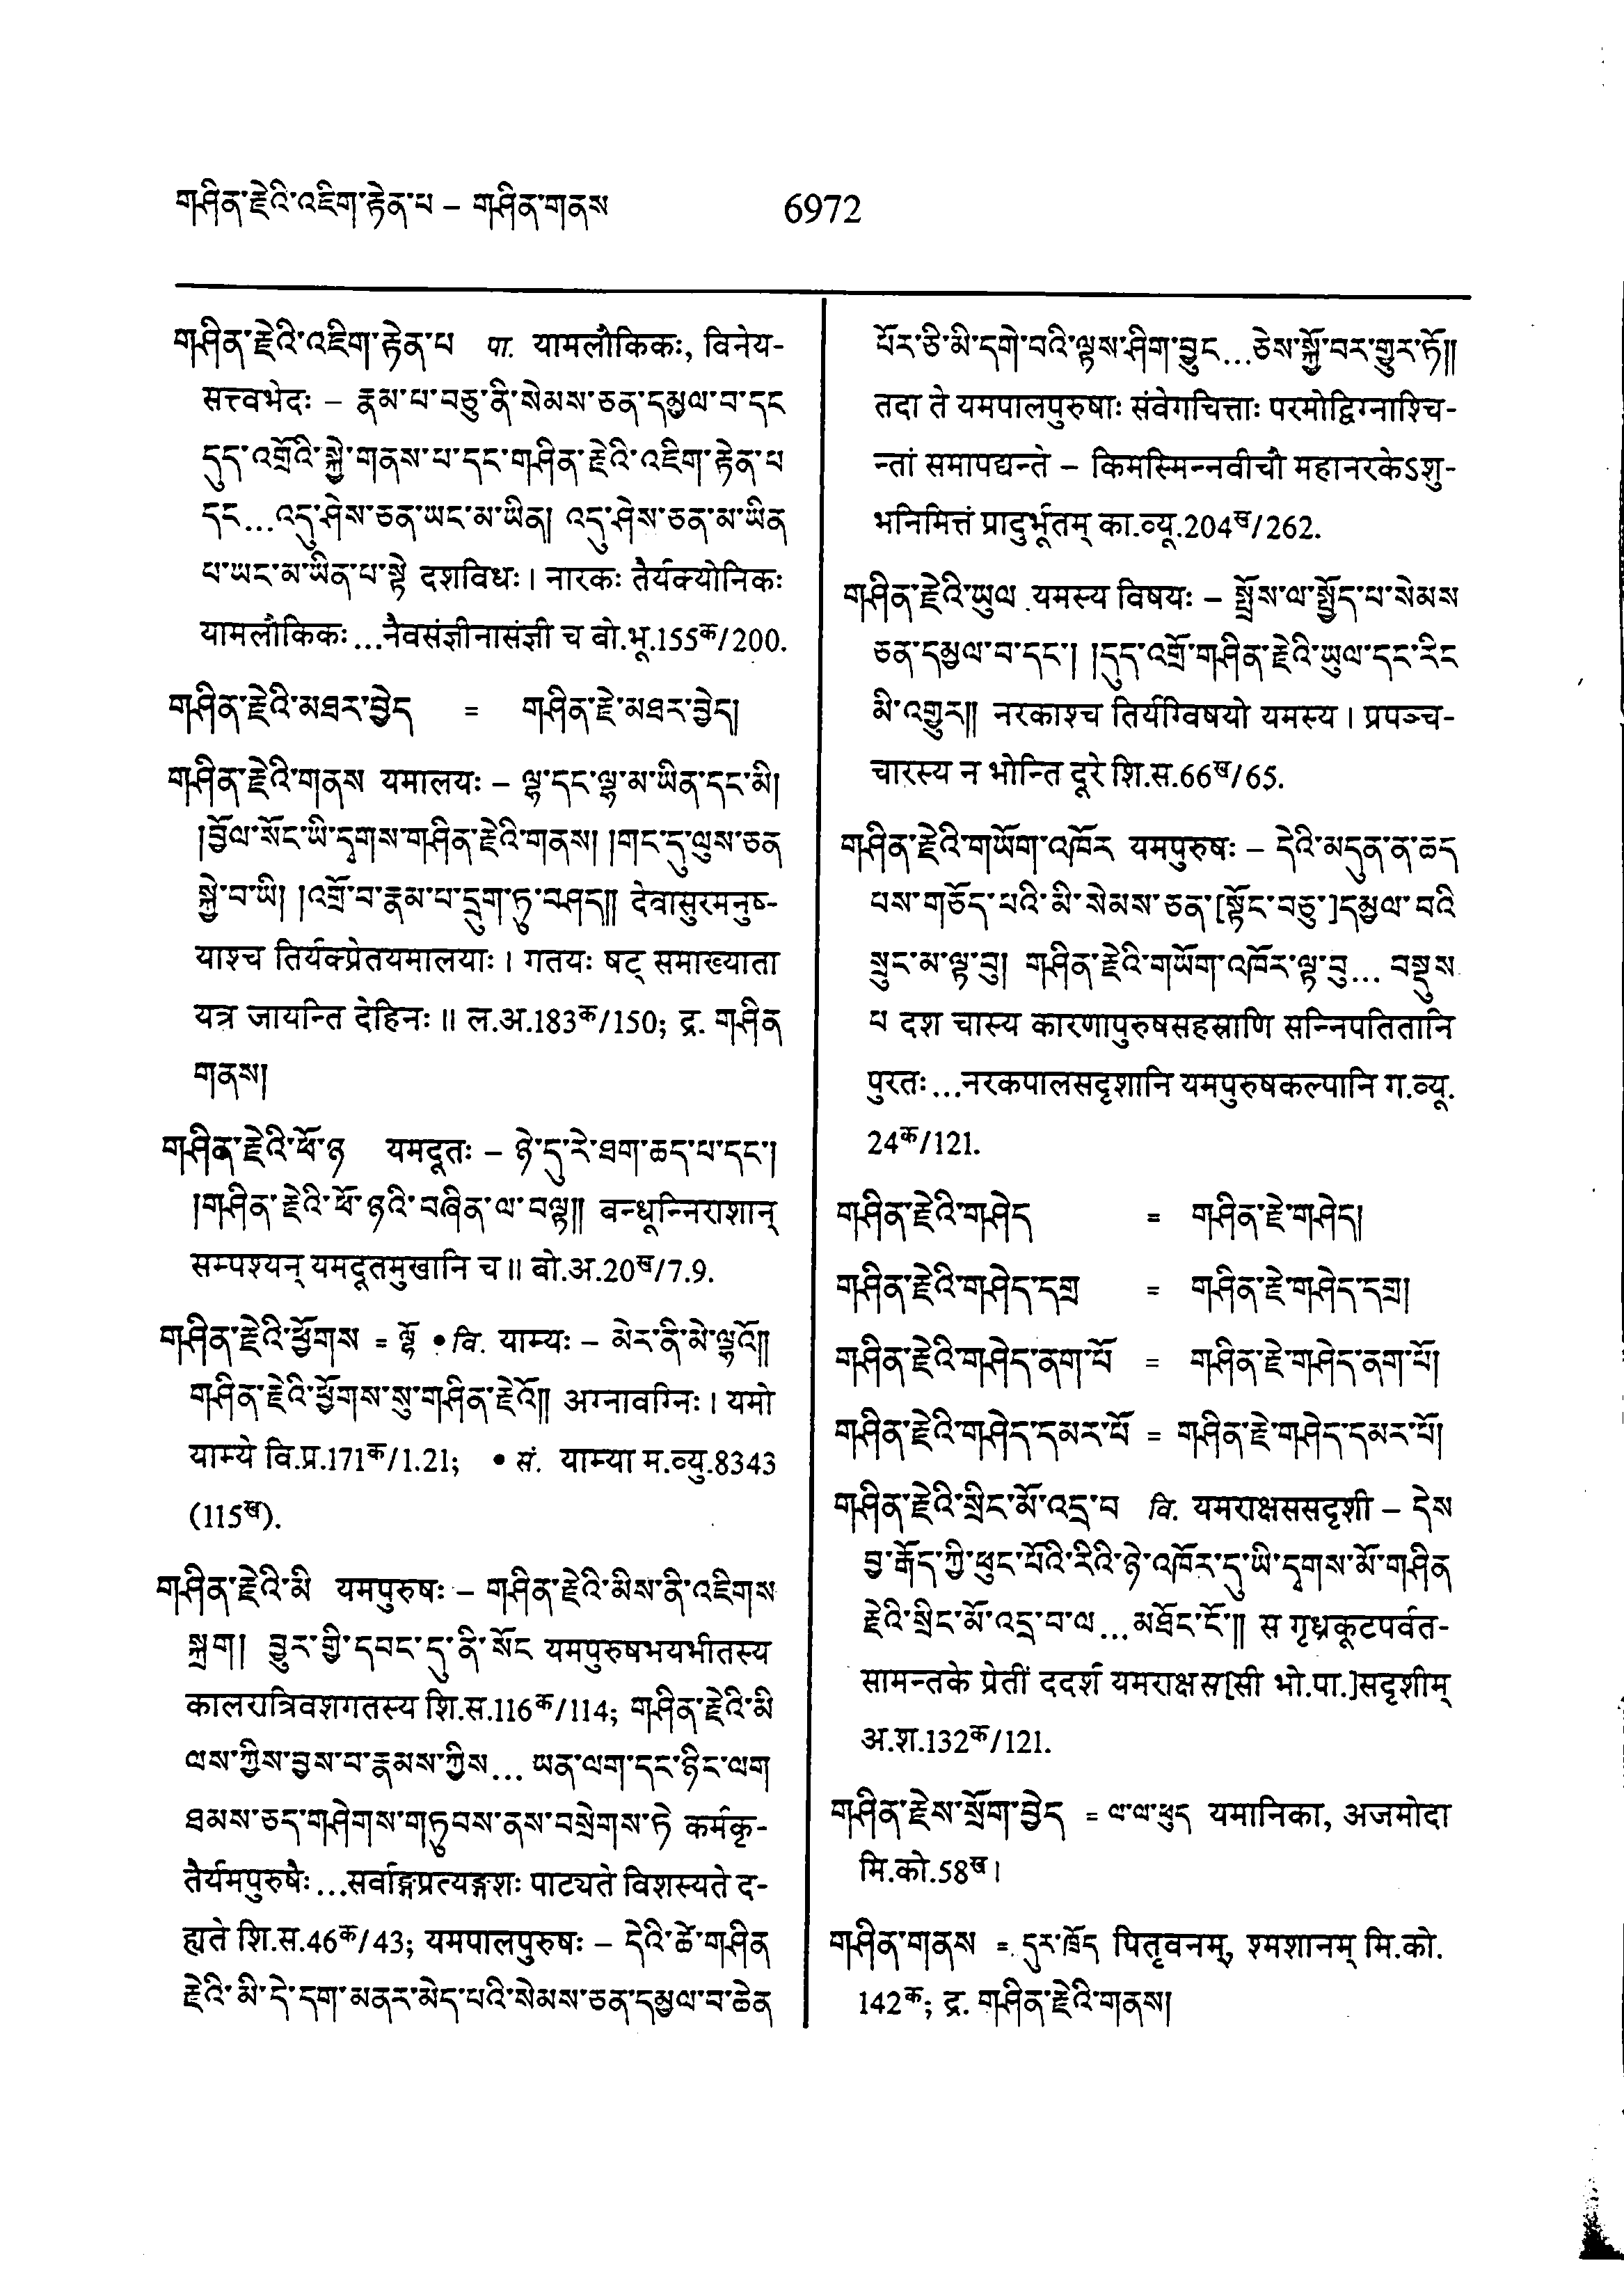 གཤིན་རྗེའི་འཇིག་རྟེན་པ – གཤིན་གནས
6972
གཤིན་རྗེའི་འཇིག་རྟེན་པ पा. यामलौकिकः, विनेय-
सत्त्वभेदः – རྣམ་པ་བཅུ་ནི་སེམས་ཅན་དམྱལ་བ་དང
དུད་འགྲོའི་སྐྱེ་གནས་པ་དང་གཤིན་རྗེའི་འཇིག་རྟེན་པ
དང...འདུ་ཤེས་ཅན་ཡང་མ་ཡིན། འདུ་ཤེས་ཅན་མ་ཡིན
པ་ཡང་མ་ཡིན་པ་སྟེ दशविधः। नारकः तैर्यक्योनिकः
यामलौकिकः...नैवसंज्ञीनासंज्ञी च बो.भू.155क/200.
གཤིན་རྗེའི་མཐར་བྱེད = གཤིན་རྗེ་མཐར་བྱེད།
གཤིན་རྗེའི་གནས यमालयः – ལྷ་དང་ལྷ་མ་ཡིན་དང་མི།
།བྱོལ་སོང་ཡི་དྭགས་གཤིན་རྗེའི་གནས། །གང་དུ་ལུས་ཅན
སྐྱེ་བ་ཡི། །འགྲོ་བ་རྣམ་པ་དྲུག་ཏུ་བཤད།། देवासुरमनुष-
याश्च तिर्यक्प्रेतयमालयाः। गतयः षट् समाख्याता
यत्र जायन्ति देहिनः॥ ल.अ.183क/150; द्र. གཤིན
གནས།
གཤིན་རྗེའི་ཕོ་ཉ यमदूतः – ཉེ་དུ་རེ་ཐག་ཆད་པ་དང་།
།གཤིན་རྗེའི་ཕོ་ཉའི་བཞིན་ལ་བལྟ།། बन्धून्निराशान्
सम्पश्यन् यमदूतमुखानि च॥ बो.अ.20ख/7.9.
གཤིན་རྗེའི་ཕྱོགས = ལྷོ • वि. याम्यः – མེར་ནི་མེ་ལྷའོ།།
གཤིན་རྗེའི་ཕྱོགས་སུ་གཤིན་རྗེའོ།། अग्नावग्निः। यमो
याम्ये वि.प्र.171क/1.21; • सं. याम्या म.व्यु.8343
(115ख).
གཤིན་རྗེའི་མི यमपुरुषः – གཤིན་རྗེའི་མིས་ནི་འཇིགས
སྐྲག། བྱུར་གྱི་དབང་དུ་ནི་སོང यमपुरुषभयभीतस्य
कालरात्रिवशगतस्य शि.स.116क/114; གཤིན་རྗེའི་མི
ལས་ཀྱིས་བྱས་པ་རྣམས་ཀྱིས... ཡན་ལག་དང་ཉིང་ལག
ཐམས་ཅད་གཤེགས་གཏུབས་ནས་བསྲེགས་ཏེ कर्मकृ-
तैर्यमपुरुषैः...सर्वाङ्गप्रत्यङ्गशः पाट्यते विशस्यते द-
ह्यते शि.स.46क/43; यमपालपुरुषः – དེའི་ཚེ་གཤིན
རྗེའི་མི་དེ་དག་མནར་མེད་པའི་སེམས་ཅན་དམྱལ་བ་ཆེན
པོར་ཅི་མི་དགེ་བའི་ལྟས་ཤིག་བྱུང...ཅེས་སྐྱོ་བར་གྱུར་ཏོ།།
तदा ते यमपालपुरुषाः संवेगचित्ताः परमोद्विग्नाश्चि-
न्तां समापद्यन्ते – किमस्मिन्नवीचौ महानरकेऽशु-
भनिमित्तं प्रादुर्भूतम् का.व्यू.204ख/262.
གཤིན་རྗེའི་ཡུལ यमस्य विषयः – སྤྲོས་ལ་སྤྱོད་པ་སེམས
ཅན་དམྱལ་བ་དང་། །དུད་འགྲོ་གཤིན་རྗེའི་ཡུལ་དང་རིང
མི་འགྱུར།། नरकाश्च तिर्यग्विषयो यमस्य। प्रपञ्च-
चारस्य न भोन्ति दूरे शि.स.66ख/65.
གཤིན་རྗེའི་གཡོག་འཁོར यमपुरुषः – དེའི་མདུན་ན་ཆད
པས་གཅོད་པའི་མི་སེམས་ཅན་[སྟོང་བཅུ་]དམྱལ་བའི
སྲུང་མ་ལྟ་བུ། གཤིན་རྗེའི་གཡོག་འཁོར་ལྟ་བུ... བསྡུས
པ दश चास्य कारणापुरुषसहस्राणि सन्निपतितानि
पुरतः...नरकपालसदृशानि यमपुरुषकल्पानि ग.व्यू.
24क/121.
གཤིན་རྗེའི་གཤེད = གཤིན་རྗེ་གཤེད།
གཤིན་རྗེའི་གཤེད་དགྲ = གཤིན་རྗེ་གཤེད་དགྲ།
གཤིན་རྗེའི་གཤེད་ནག་པོ = གཤིན་རྗེ་གཤེད་ནག་པོ།
གཤིན་རྗེའི་གཤེད་དམར་པོ = གཤིན་རྗེ་གཤེད་དམར་པོ།
གཤིན་རྗེའི་སྲིང་མོ་འདྲ་བ वि. यमराक्षससदृशी – དེས
བྱ་རྒོད་ཀྱི་ཕུང་པོའི་རིའི་ཉེ་འཁོར་དུ་ཡི་དྭགས་མོ་གཤིན
རྗེའི་སྲིང་མོ་འདྲ་བ་ལ...མཐོང་ངོ་།། स गृध्रकूटपर्वत-
सामन्तके प्रेतीं ददर्श यमराक्षस[सी भो.पा.]सदृशीम्
अ.श.132क/121.
གཤིན་རྗེས་སྲོག་བྱེད = ལ་ལ་ཕུད यमानिका, अजमोदा
मि.को.58ख।
གཤིན་གནས = དུར་ཁྲོད पितृवनम्, श्मशानम् मि.को.
142क; द्र. གཤིན་རྗེའི་གནས།